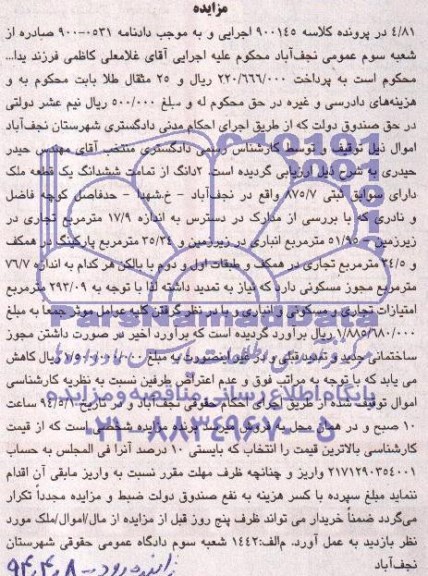 مزایده
۴/۸۱ در پرونده کلاسه ۹۰۰۱۴۵ اجرایی و به موجب دادنامه ۰۵۳۱-۹۰۰ صادره از
شعبه سوم عمومی نجف‌آباد محکوم علیه اجرایی آقای غلامعلی کاظمی فرزند یدا...
محکوم است به پرداخت ۲۲۰/۶۶۶/۰۰۰ ریال و ۲۵ مثقال طلا بابت محکوم به و
هزینه‌های دادرسی و غیره در حق محکوم له و مبلغ ۵۰۰/۰۰۰ ریال نیم عشر دولتی
در حق صندوق دولت که از طریق اجرای احکام مدنی دادگستری شهرستان نجف‌آباد
اموال ذیل توقیف و توسط کارشناس رسمی دادگستری منتخب آقای مهندس حیدر
حیدری به شرح ذیل ارزیابی گردیده است. ۲دانگ از تمامت ششدانگ یک قطعه ملک
دارای سوابق ثبتی ۸۷۵/۷ واقع در نجف‌آباد - خ.شهدا - حدفاصل کوچه فاضل
و نادری که با بررسی از مدارک در دسترس به اندازه ۱۷/۹ مترمربع تجاری در
زیرزمین ۵۱/۹۵ مترمربع انباری در زیرزمین و ۲۵/۲۴ مترمربع پارکینگ در همکف
و ۳۴/۵ مترمربع تجاری در همکف و طبقات اول و دوم با بالکن هر کدام به اندازه ۷۶/۷
مترمربع مجوز مسکونی دارد که نیاز به تمدید داشته لذا با توجه به ۲۹۳/۰۹ مترمربع
امتیازات تجاری و مسکونی و انباری و با در نظر گرفتن کلیه عوامل موثر جمعا به مبلغ
۱/۸۸۵/۶۸۰/۰۰۰ ریال برآورد گردیده است که برآورد اخیر در صورت داشتن مجوز
ساختمانی جدید و تمدید قبلی و در غیر اینصورت به مبلغ ریال کاهش
می یابد که با توجه به مراتب فوق و عدم اعتراض طرفین نسبت به نظریه کارشناسی
اموال توقیف شده از طریق اجرای احکام حقوقی نجف‌آباد و در تاریخ ساعت
۱۰ صبح و در همان محل به فروش میرسد برنده مزایده شخصی است که از قیمت
کارشناسی بالاترین قیمت را انتخاب که بایستی ۱۰ درصد آنرا فی المجلس به حساب
۲۱۷۱۲۹۰۳۵۴۰۰۱ واریز و چنانچه ظرف مهلت مقرر نسبت به واریز مابقی آن اقدام
ننماید مبلغ سپرده با کسر هزینه به نفع صندوق دولت ضبط و مزایده مجدداً تکرار
می‌گردد ضمناً خریدار می تواند ظرف پنج روز قبل از مزایده از مال/اموال/ملک مورد
نظر بازدید به عمل آورد. م‌الف:۱۴۴۲ شعبه سوم دادگاه عمومی حقوقی شهرستان
نجف‌آباد
زاینده رود - ۹۴،۴،۸
ParsNamadData
پایگاه اطلاع رسانی مناقصه و مزایده
۰۲۱-۸۸۳۴۹۶۷۰-۵